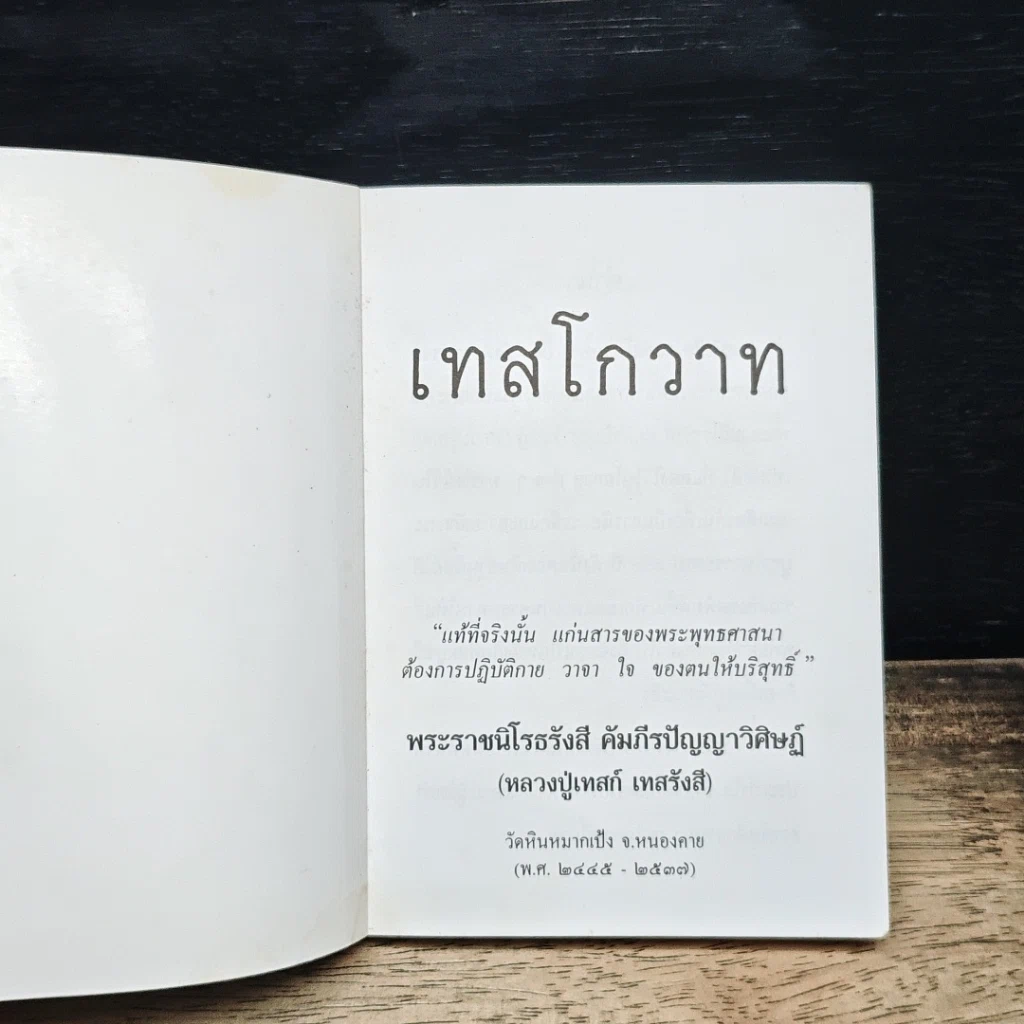 เทสโกวาท
“แท้ที่จริงนั้น แก่นสารของพระพุทธศาสนา
ต้องการปฏิบัติกาย วาจา ใจ ของตนให้บริสุทธิ์”
พระราชนิโรธรังสี คัมภีรปัญญาวิศิษฏ์
(หลวงปู่เทสก์ เทสรังสี)
วัดหินหมากเป้ง จ.หนองคาย
(พ.ศ. ๒๔๔๕ - ๒๕๓๗)